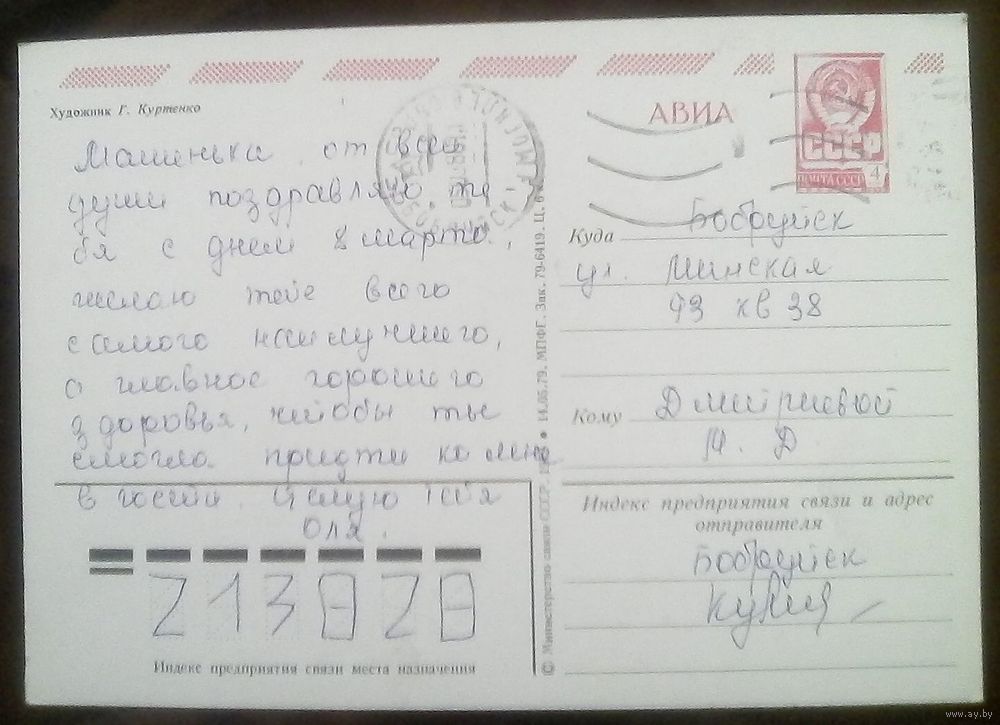 Художник Г. Куртенко
АВИА
СССР
ПОЧТА СССР
4
Машинька от всей
души поздравляю те
бя с днем 8 марта,
желаю тебе всего
самого наилучшего,
а главное хорошего
здоровья, чтобы ты
смогла придти ко мне
в гости. Целую тебя
Оля.
Куда Бобруйск
ул. Минская
93 кв 38
Кому Дмитриевой
М. Д
Индекс предприятия связи и адрес
отправителя
Бобруйск
213828
Индекс предприятия связи места назначения
© Министерство связи СССР.
14.05.79. МПФГ. Зак. 79-6419. Ц.
www.ay.by